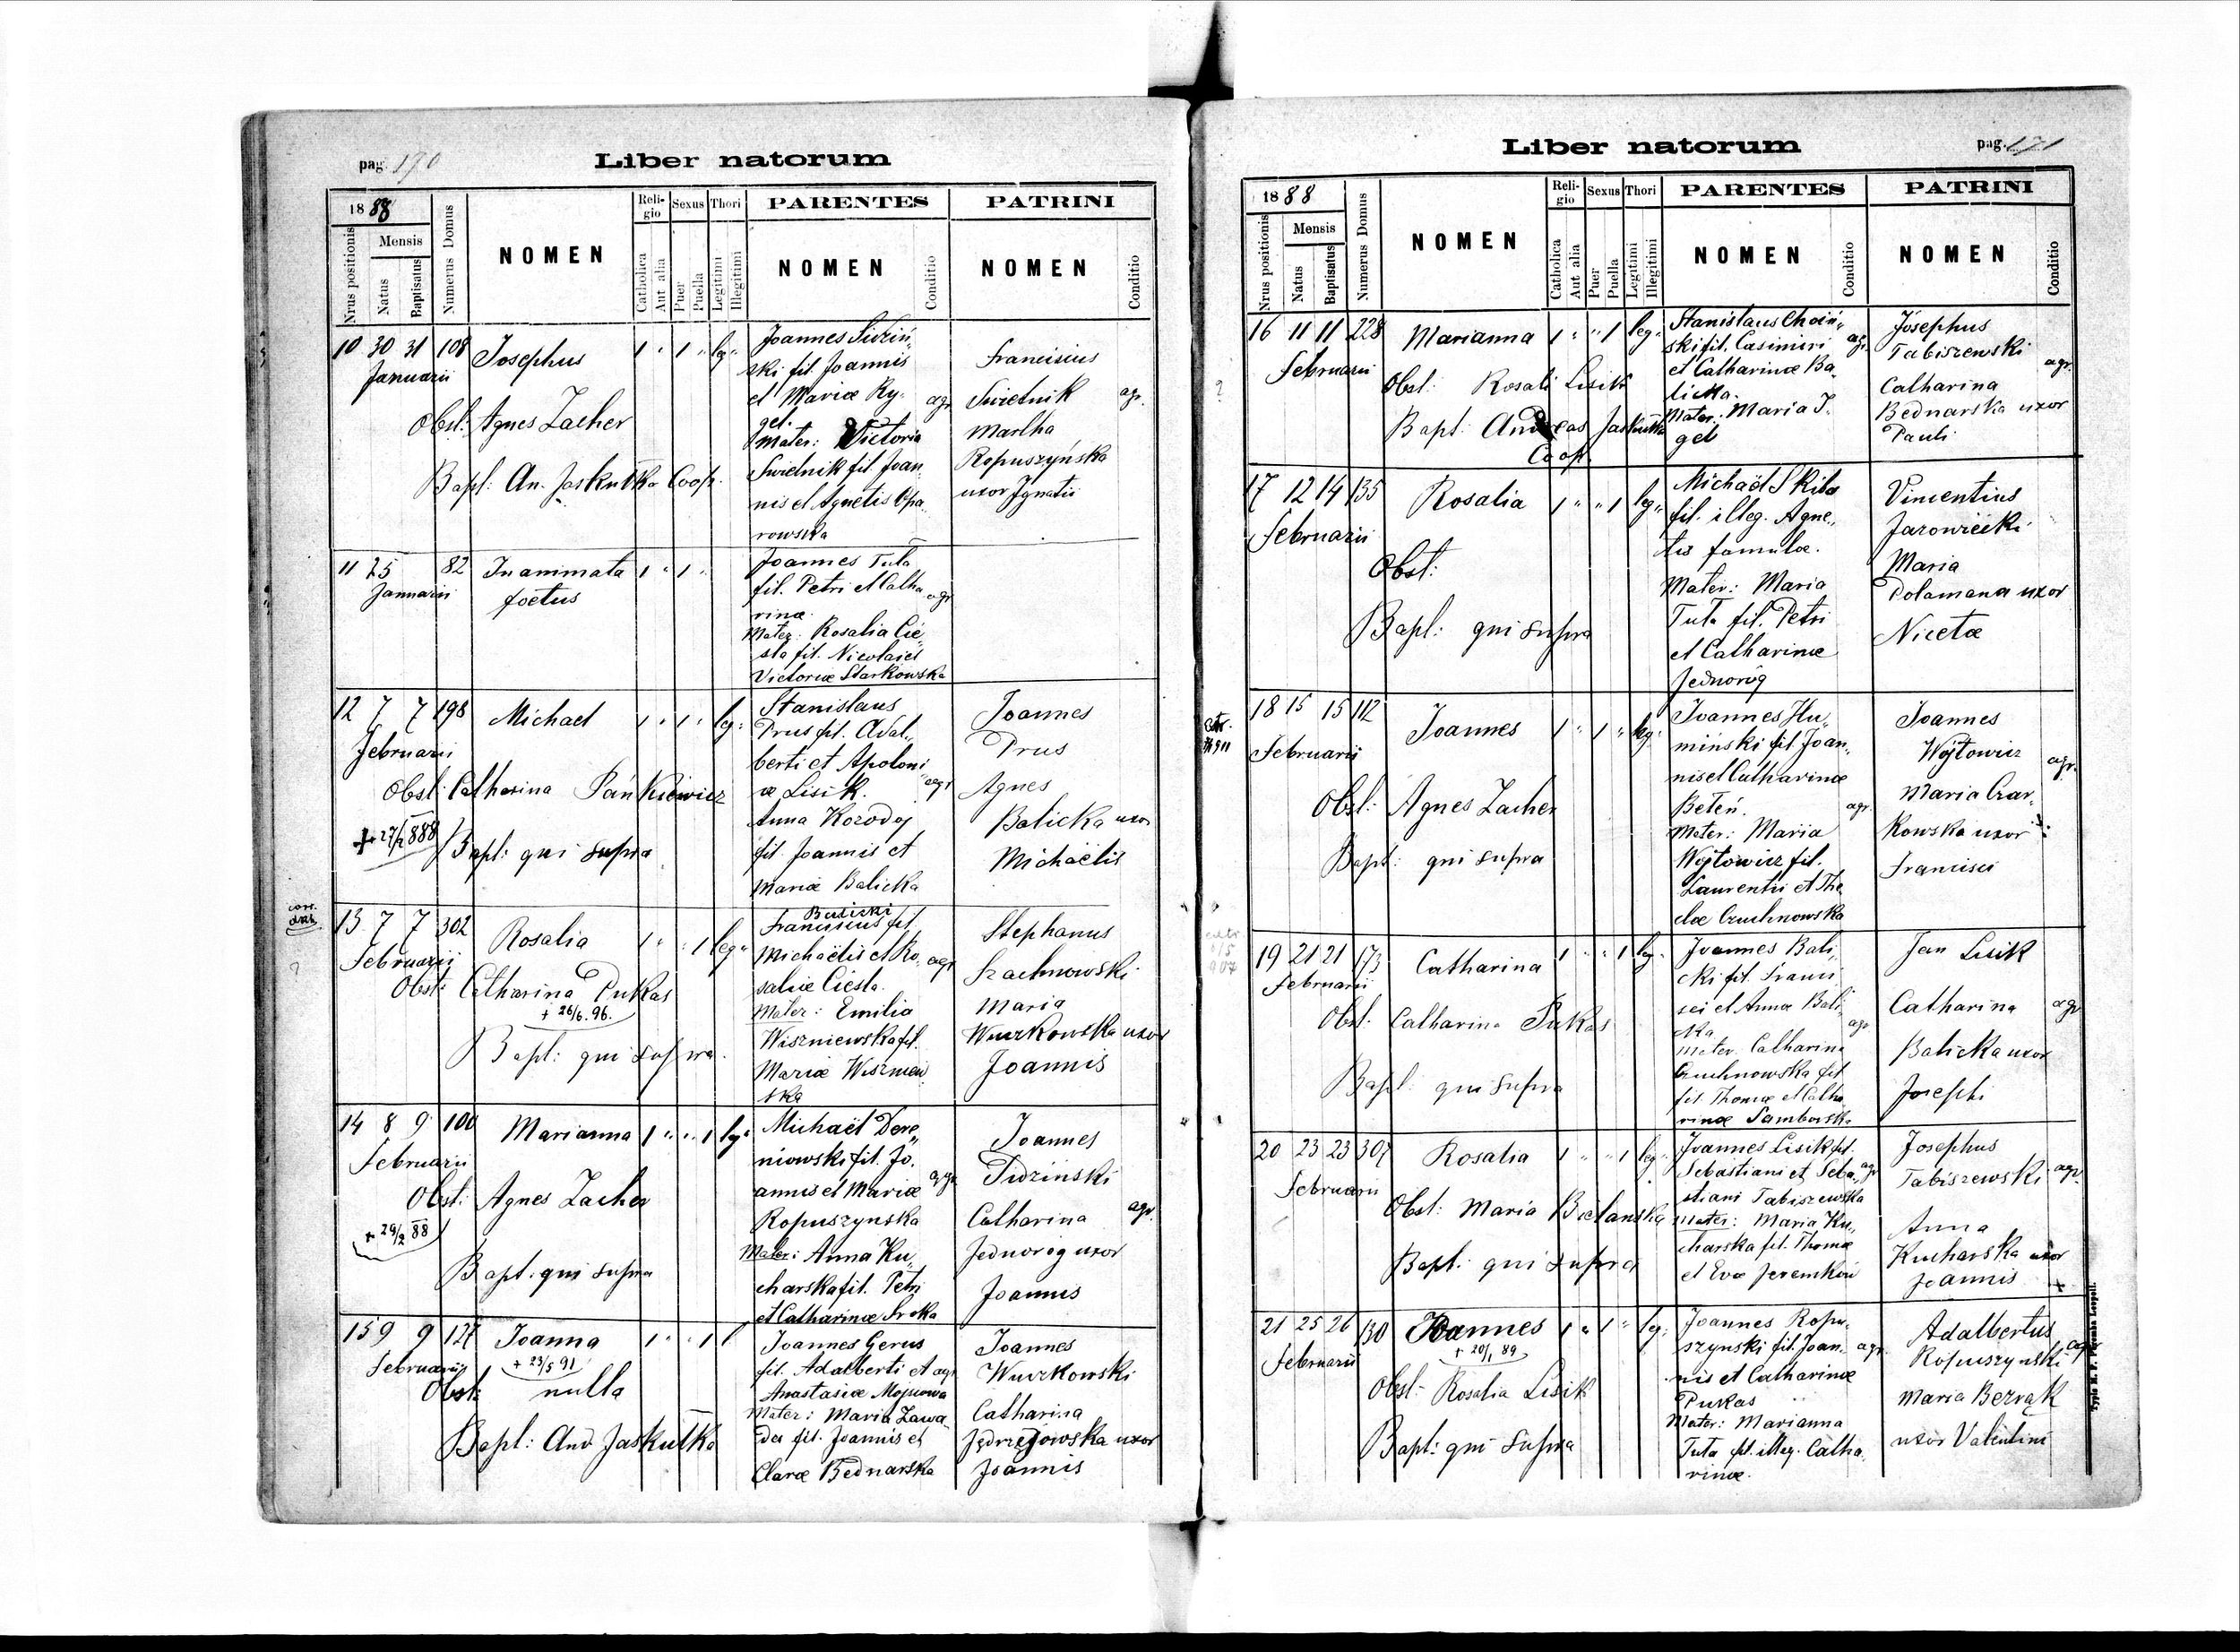 pag. 170
Liber natorum
1888
Nrus positionis
Mensis
Natus
Baptisatus
Numerus Domus
NOMEN
Religio
Catholica
Aut alia
Sexus
Puer
Puella
Thori
Legitimi
Illegitimi
PARENTES
NOMEN
Conditio
PATRINI
NOMEN
Conditio
10 30 31 108 Josephus 1 " 1 " leg.
Januarii
Obst: Agnes Zacher
Bapt: An. Jaskułka Coop.
ski fil. Joannis
et Mariæ Ry-
gel. agr.
Mater: Victoria
Swietnik fil. Joan-
nis et Agnetis Opa-
rowska
Franciscus
Swietnik agr.
Martha
Ropuszyńska
uxor Ignatii
11 25 82 Inanimata 1 " 1 "
Januarii foetus
Joannes Tuta
fil. Petri et Catha agr
rinæ
Mater: Rosalia Cie-
sla fil. Nicolai et
Victoriæ Starkowska
12 7 7 198 Michael 1 " 1 " leg:
Februarii
Obst: Catharina Pańkiewicz
+ 27/2 888
Bapt: qui supra
Stanislaus
Prus fil. Adal-
berti et Apoloni
æ Lisik. agr
Anna Korodoj
fil. Joannis et
Mariæ Balicka
Joannes
Prus
Agnes
Balicka uxor
Michaëlis
13 7 7 302 Rosalia 1 " " 1 leg"
Februarii
Obst: Catharina Pukas
+ 26/6. 96.
Bapt: qui supra.
Balicki
Franciscus fil
Michaëlis et Ro agr
saliæ Ciesla.
Mater: Emilia
Wiszniewska fil.
Mariæ Wiszniew
ska
Stephanus
Szachnowski
Maria
Wuszkowska uxor
Joannis
14 8 9 100 Marianna 1 " " 1 leg"
Februarii
Obst: Agnes Zacher
+ 29/2 88
Bapt: qui supra
Michaël Dere-
niowski fil. Jo.
annis et Mariæ agr
Ropuszynska
Mater: Anna Ku-
charska fil. Petri
et Catharinæ Sroka
Joannes
Sidzinski
Catharina agr.
Jednorog uxor
Joannis
15 9 9 127 Joanna 1 " " 1 l
Februarii + 23/5 91
Obst: nulla
Bapt: And Jaskułka
Joannes Gerus
fil. Adalberti et agr
Anastasiæ
Mater: Maria Zawa
da fil. Joannis et
Claræ Bednarska
Joannes
Wuszkowski
Catharina
Jędrzejowska uxor
Joannis
Liber natorum
pag. 171
1888
Nrus positionis
Mensis
Natus
Baptisatus
Numerus Domus
NOMEN
Religio
Catholica
Aut alia
Sexus
Puer
Puella
Thori
Legitimi
Illegitimi
PARENTES
NOMEN
Conditio
PATRINI
NOMEN
Conditio
16 11 11 228 Marianna 1 " " 1 leg"
Februarii
Obst: Rosali Lisik
Bapt: Andreas Jaskułka
Coop.
Stanislaus Choiń-
ski fil. Casimiri agr.
et Catharinæ Ba
licka.
Mater: Maria I-
gel
Josephus
Tabiszewski agr.
Catharina
Bednarska uxor
Pauli
17 12 14 135 Rosalia 1 " " 1 leg"
Februarii
Obst:
Bapt: qui supra
Michaël Skiba
fil. illeg. Agne-
tis famulæ.
Mater: Maria
Tuta fil. Petri
et Catharinæ
Jednoróg
Vincentius
Jarowiecki
Maria
Dolamana uxor
Nicetæ
18 15 15 112 Joannes 1 " 1 " leg"
Februarii
Obst: Agnes Zacher
Bapt: qui supra
Joannes Hu-
miński fil. Joan-
nis et Catharinæ
Beteń. agr
Mater: Maria
Wojtowicz fil.
Laurentii et The
clæ Czuchnowska
Joannes
Wojtowicz agr.
Maria Czar-
kowska uxor
Francisci
19 21 21 173 Catharina 1 " " 1 leg.
Februarii
Obst: Catharina Pukas
Bapt: qui supra
Joannes Bali-
cki fil. Franci
sci et Annæ Bali
cka agr
Mater Catharina
Czuchnowska fil
fil Thomæ et Catha
rinæ Samborska
Jan Lisik
Catharina agr
Balicka uxor
Josephi
20 23 23 307 Rosalia 1 " " 1 leg.
Februarii
Obst: Maria Bielanska
Bapt: qui supra
Joannes Lisik fil.
Sebastiani et Seba agr
stiani Tabiszewska
Mater: Maria Ku-
charska fil. Thomæ
et Evæ
Josephus
Tabiszewski agr.
Anna
Kucharska uxor
Joannis
21 25 26 130 Joannes 1 " 1 " leg.
Februarii + 20/1 89
Obst: Rosalia Lisik
Bapt: qui supra
Joannes Ropu-
szynski fil. Joan- agr.
nis et Catharinæ
Pukas
Mater: Marianna
Tuta fil. illeg. Catha
rinæ.
Adalbertus
Ropuszynski agr
Maria Bezrąk
uxor Valentini